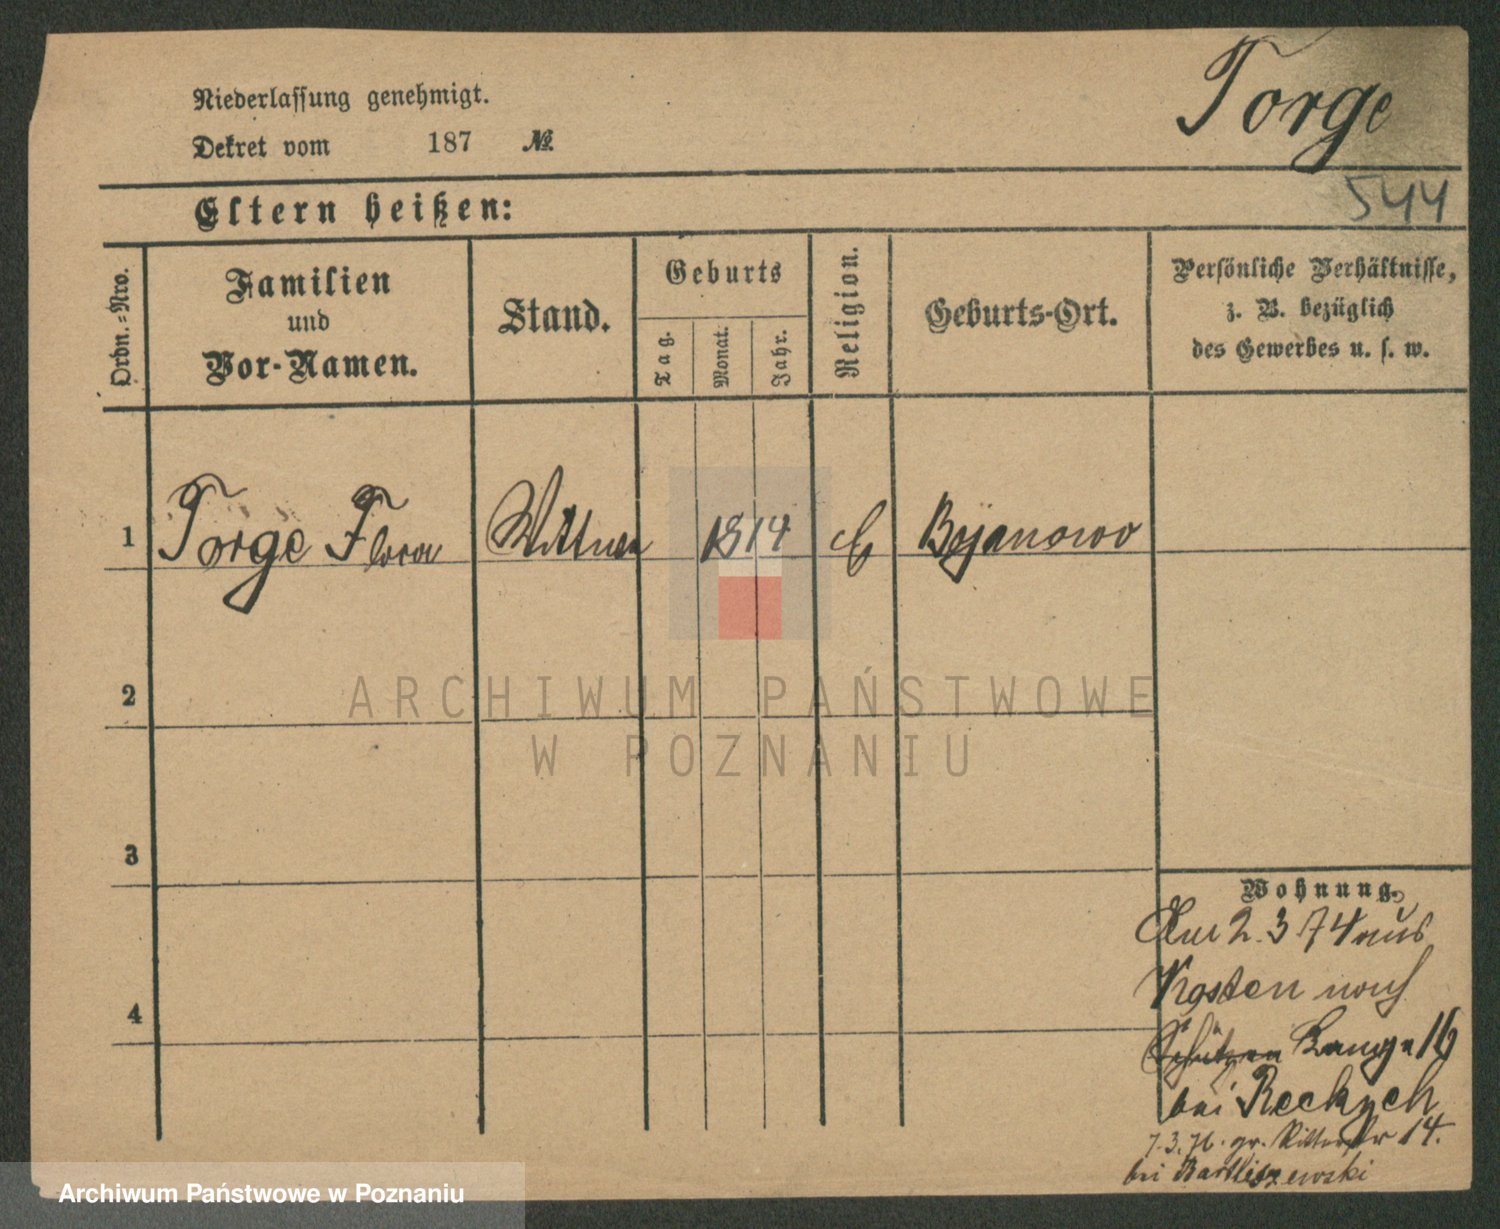 Niederlassung genehmigt.
Torge
Dekret vom 187 №
544
Eltern heißen:
Ordn.-Nro.
Familien
und
Vor-Namen.
Stand.
Geburts
Tag.
Monat.
Jahr.
Religion.
Geburts-Ort.
Persönliche Verhältnisse,
z. B. bezüglich
des Gewerbes u. s. w.
1 Torge Flora Wittwe 1814 Bojanowo
2
ARCHIWUM PAŃSTWOWE
W POZNANIU
3
Wohnung.
2. 3 74 aus
Kosten nach
4
Schützen Lange 16
bei
7.3.76. gr. Ritterstr 14.
bei Bartliszewski
Archiwum Państwowe w Poznaniu